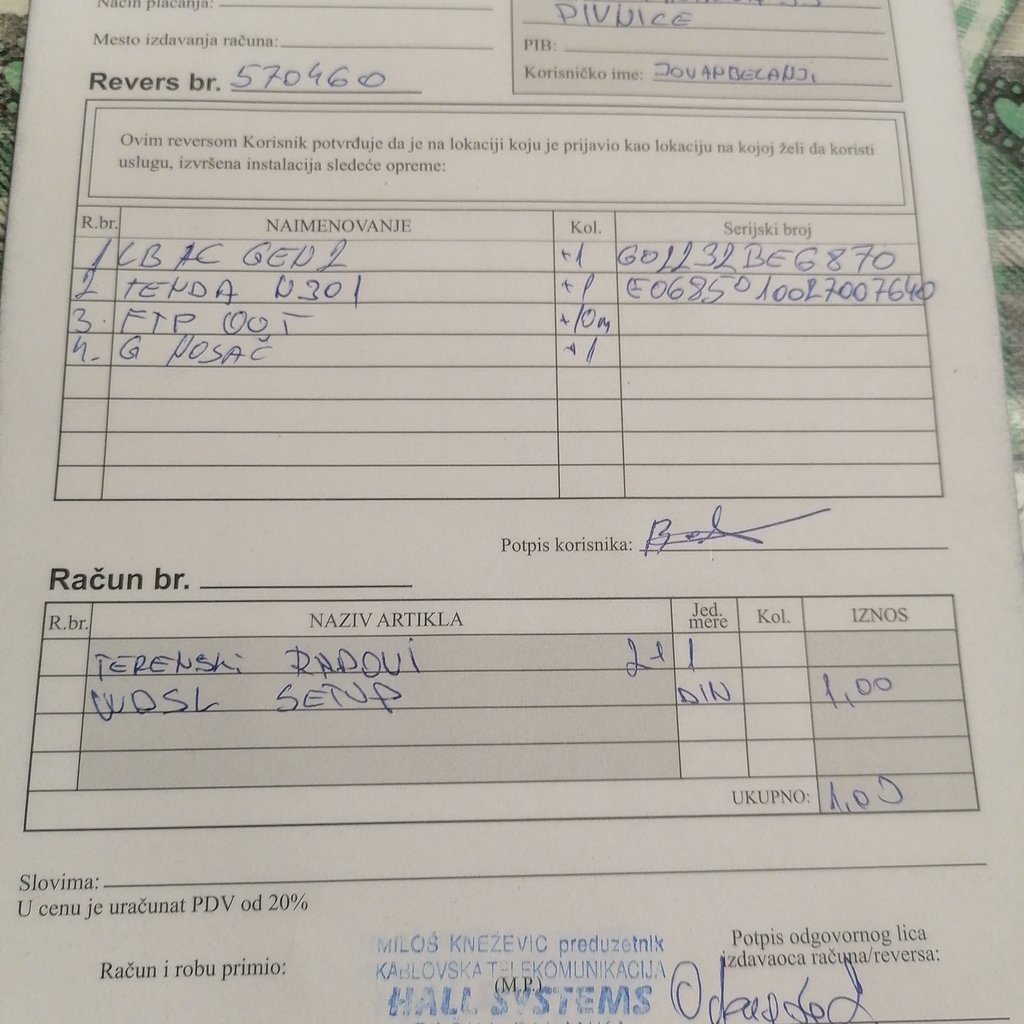 Način plaćanja:
PIVNICE
Mesto izdavanja računa:
PIB:
Revers br. 570460
Korisničko ime: JOVANBELANJI
Ovim reversom Korisnik potvrđuje da je na lokaciji koju je prijavio kao lokaciju na kojoj želi da koristi
uslugu, izvršena instalacija sledeće opreme:
R.br. NAIMENOVANJE Kol. Serijski broj
1 LB AC GEN2 +1
2 TENDA N301 +1
3. FTP OUT +10m
4. G NOSAČ +1
Potpis korisnika:
Račun br.
R.br. NAZIV ARTIKLA Jed. mere Kol. IZNOS
TERENSKI RADOVI 2+1
WDSL SETUP DIN 1,00
UKUPNO: 1,00
Slovima:
U cenu je uračunat PDV od 20%
MILOŠ KNEŽEVIC preduzetnik
Potpis odgovornog lica
Račun i robu primio:
KABLOVSKA TELEKOMUNIKACIJA
izdavaoca računa/reversa:
(M.P.)
HALL SYSTEMS